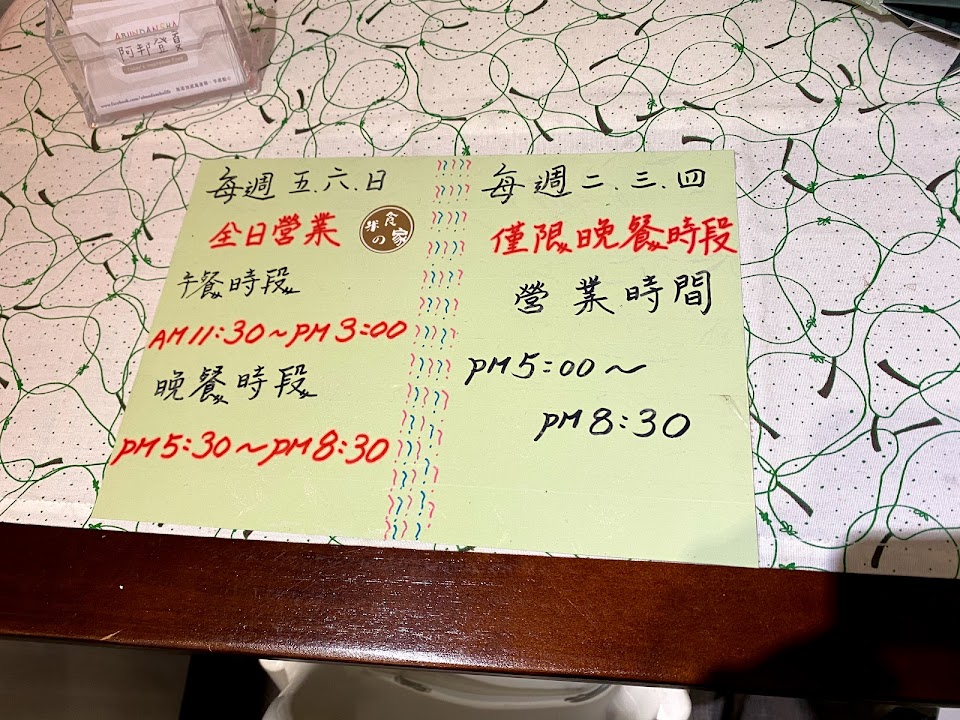 ABUNDANCHA
阿邦登夏
每週五.六.日
全日營業
食米の家
午餐時段
AM 11:30～PM 3:00
晚餐時段
PM 5:30～PM 8:30
每週二.三.四
僅限晚餐時段
營業時間
PM 5:00～
PM 8:30